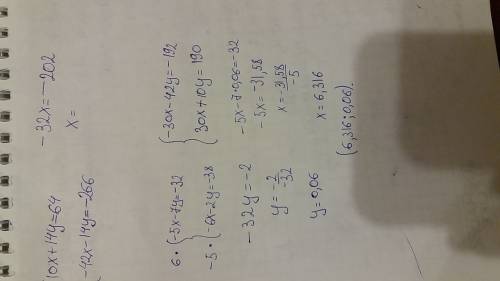 10x+14y=64
-42x-14y=-266
-32x=-202
x=
6·{-5x-7y=-32
-5·{-6x-2y=-38
{-30x-42y=-192
30x+10y=190
-32y=-2
y=-2/-32
y=0,06
-5x-7·0,06=-32
-5x=-31,58
x=-31,58/-5
x=6,316
(6,316;0,06).